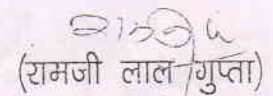 (रामजी लाल गुप्ता)